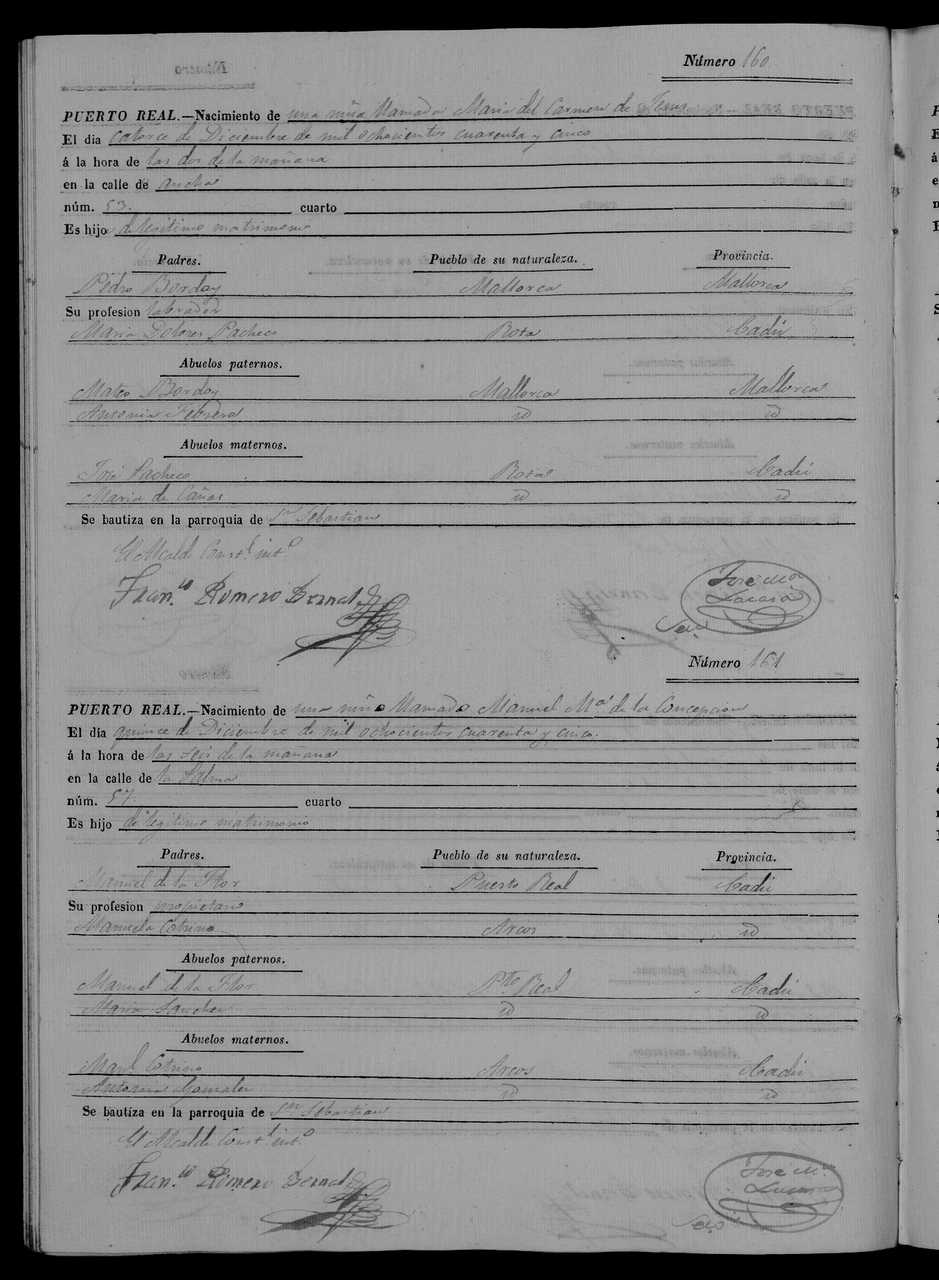 Número 160
PUERTO REAL.—Nacimiento de una niña llamada Maria del Carmen de Jesus
El día catorce de Diciembre de mil ochocientos cuarenta y cinco
á la hora de las dos de la mañana
en la calle de ancha
núm. 53. cuarto
Es hijo de legitimo matrimonio
Padres. Pueblo de su naturaleza. Provincia.
Pedro Borday Mallorca Mallorca
Su profesion labrador
Maria Dolores Pacheco Rota Cadiz
Abuelos paternos.
Mateo Borday Mallorca Mallorca
Antonia Febrera id id
Abuelos maternos.
José Pacheco Rota Cadiz
Maria de Cañas id id
Se bautiza en la parroquia de Sn Sebastian
El Alcalde Const.l int.o
Fran.co Romero Bernal
José Ma
Seco
Número 161
PUERTO REAL.—Nacimiento de una niño llamado Manuel Ma. de la Concepcion
El día quince de Diciembre de mil ochocientos cuarenta y cinco.
á la hora de las seis de la mañana
en la calle de la Palma
núm. 57. cuarto
Es hijo de legitimo matrimonio
Padres. Pueblo de su naturaleza. Provincia.
Manuel de la Flor Puerto Real Cadiz
Su profesion propietario
Manuela Cotrino Arcos id
Abuelos paternos.
Manuel de la Flor Pto Real Cadiz
Maria Sanchez id id
Abuelos maternos.
Manl Cotrino Arcos Cadiz
Antonia Gonzalez id id
Se bautiza en la parroquia de Sn Sebastian
El Alcalde Const.l int.o
Fran.co Romero Bernal
José Ma
Seco